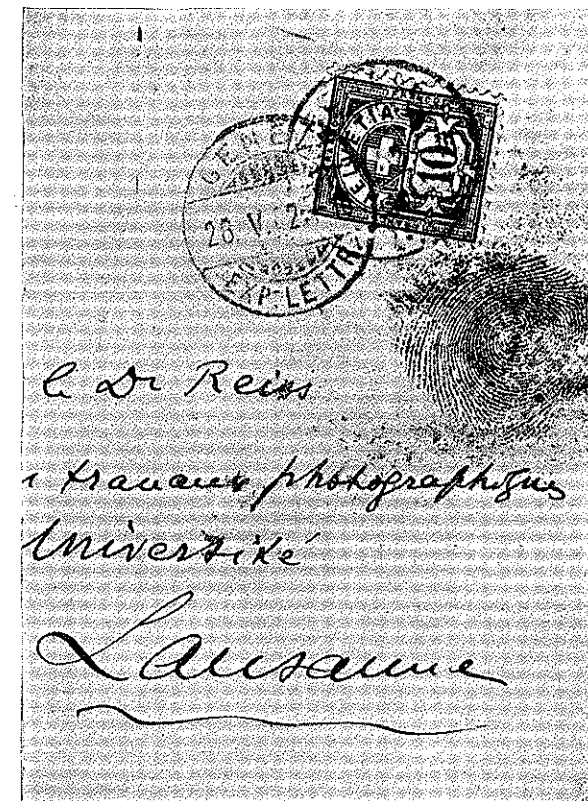 HELVETIA
10
GENÈVE
26 V. 
EXP. LETTR.
le Dr Reiss
travaux photographiques
Université
Lausanne